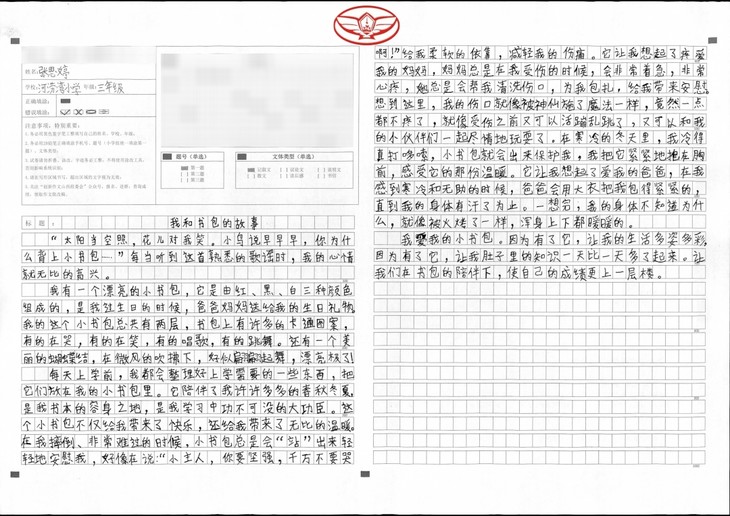 姓名：张思婷
学校：河滨湾小学 年级：三年级
正确填涂：
错误填涂：
注意事项，特别重要：
题号（单选）
文体类型（单选）
标 题：我和书包的故事
“太阳当空照，花儿对我笑。小鸟说早早早，你为什
么背上小书包……”每当听到这首熟悉的歌谣时，我的心情
就无比的高兴。
我有一个漂亮的小书包，它是由红、黑、白三种颜色
组成的，是我过生日的时候，爸爸妈妈送给我的生日礼物。
我的这个小书包总共有两层，书包上有许多的卡通图案，
有的在哭，有的在笑，有的唱歌，有的跳舞。还有一个美
丽的蝴蝶结，在微风的吹拂下，好似翩翩起舞，漂亮极了！
每天上学前，我都会整理好上学需要的一些东西，把
它们放在我的小书包里。它陪伴了我许许多多的春秋冬夏，
是我书本的容身之地，是我学习中功不可没的大功臣。这
个小书包不仅给我带来了快乐，还给我带来了无比的温暖。
在我摔倒、非常难过的时候，小书包总是会“站”出来轻
轻地安慰我，好像在说：“小主人，你要坚强，千万不要哭
啊！”给我柔软的依靠，减轻我的伤痛。它让我想起了疼爱
我的妈妈，妈妈总是在我受伤的时候，会非常着急，非常
心疼，她总是会帮我清洗伤口，为我包扎，给我带来安慰。
想到这里，我的伤口就像被神仙施了魔法一样，竟然一点
都不疼了，就像受伤之前又可以活蹦乱跳了，又可以和我
的小伙伴们一起尽情地玩耍了。在寒冷的冬天里，我冷得
直打哆嗦，小书包就会出来保护我，我把它紧紧地抱在胸
前，感受它的那份温暖。它让我想起了爱我的爸爸，在我
感到寒冷和无助的时候，爸爸会用大衣把我包得紧紧的，
直到我的身体有汗了为止。一想完，我的身体不知道为什
么，就像被火烤了一样，浑身上下都暖暖的。
我爱我的小书包。因为有了它，让我的生活多姿多彩，
因为有了它，让我肚子里的知识一天比一天多了起来。让
我们在书包的陪伴下，使自己的成绩更上一层楼。